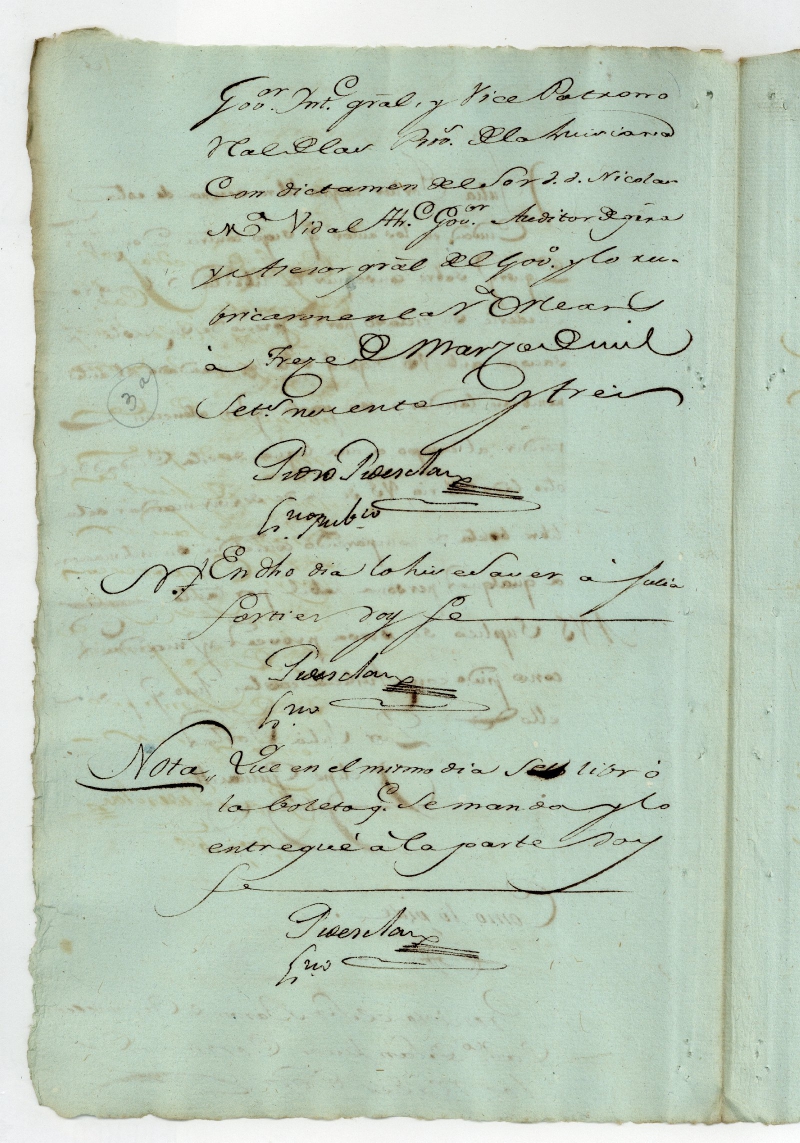 Govor. Intte. gral. y Vice Patrono
Rl. al de las Prov. de la Luiciana
Con dictamen del Sor. d. d. Nicolas
Ma. Vidal thte. Govor. Auditor de gera
y Asesor gral. del Govo. y lo ru-
bricaron en la Na. Orleans
à Treze de Marzo de mil
Sets. noventa y tres
Pedro Pedesclaux
Esno. Pubco
Not. En dho dia lo hise Saver à Julia
Fortier doy fe
Pedesclaux
Esno
Nota,, Que en el mismo dia se libró
la boleta qe. Se manda y lo
entregué à la parte doy
fe
Pedesclaux
Esno
3a